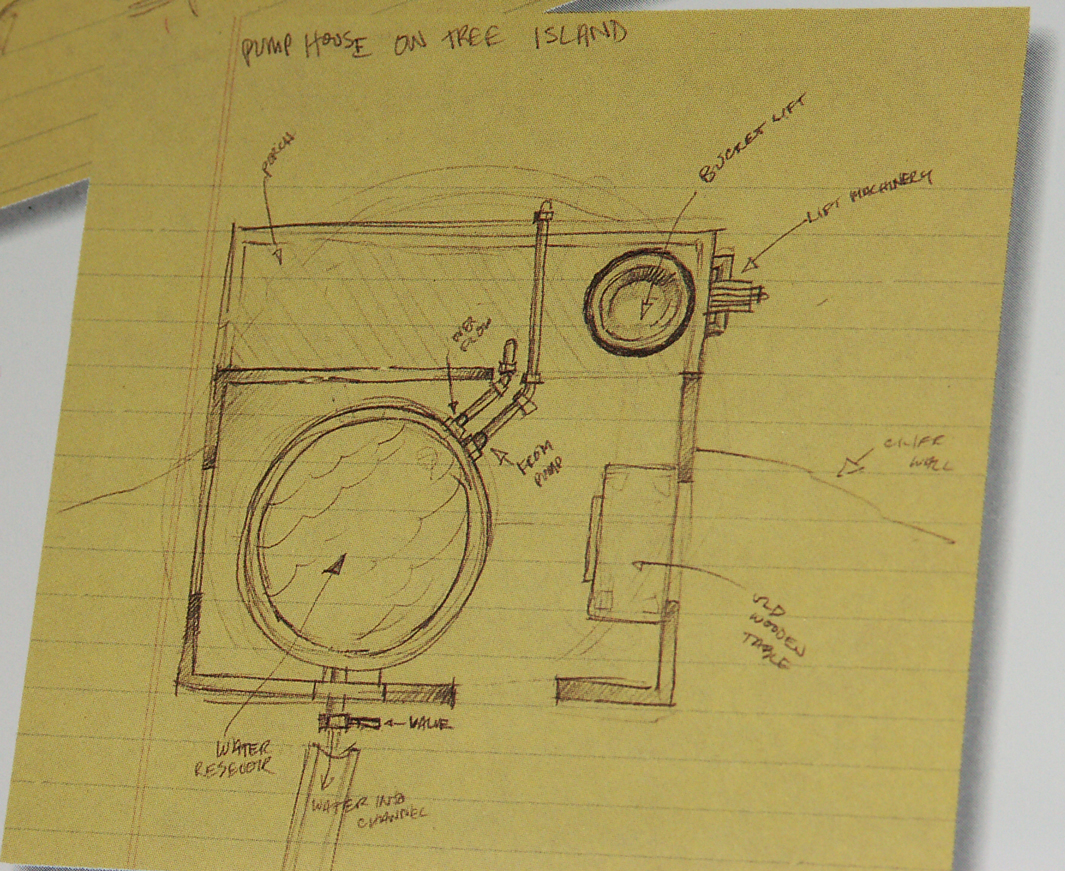 PUMP HOUSE ON TREE ISLAND
PORCH
BUCKET LIFT
LIFT MACHINERY
OVER
FLOW
FROM
PUMP
CLIFF
WALL
OLD
WOODEN
TABLE
VALVE
WATER
RESEVOIR
WATER INTO
CHANNEL